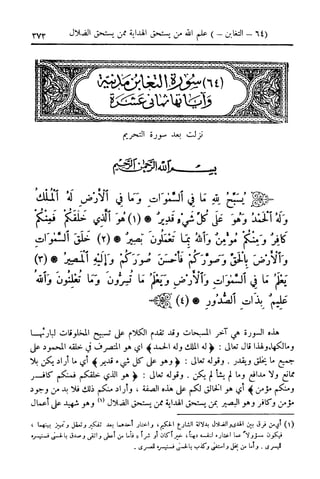 (٦٤ - التغابن - ) علم الله من يستحق الهداية ممن يستحق الضلال ٣٧٣
(٦٤) سورة التغابن مدنية
وآياتها ثماني عشرة
نزلت بعد سورة التحريم
بسم الله الرحمن الرحيم
يُسَبِّحُ لِلَّهِ مَا فِي السَّمٰوَاتِ وَمَا فِي الْأَرْضِ لَهُ الْمُلْكُ
وَلَهُ الْحَمْدُ وَهُوَ عَلَى كُلِّ شَيْءٍ قَدِيرٌ * (١) هُوَ الَّذِي خَلَقَكُمْ فَمِنْكُمْ
كَافِرٌ وَمِنْكُمْ مُؤْمِنٌ وَاللَّهُ بِمَا تَعْمَلُونَ بَصِيرٌ * (٢) خَلَقَ السَّمٰوَاتِ
وَالْأَرْضَ بِالْحَقِّ وَصَوَّرَكُمْ فَأَحْسَنَ صُوَرَكُمْ وَإِلَيْهِ الْمَصِيرُ * (٣)
يَعْلَمُ مَا فِي السَّمٰوَاتِ وَالْأَرْضِ وَيَعْلَمُ مَا تُسِرُّونَ وَمَا تُعْلِنُونَ وَاللَّهُ
عَلِيمٌ بِذَاتِ الصُّدُورِ * (٤)
هذه السورة هي آخر المسبحات وقد تقدم الكلام على تسبيح المخلوقات لبارئها
ومالكها ولهذا قال تعالى : ﴿ له الملك وله الحمد ﴾ اي هو المتصرف في خلقه المحمود على
جميع ما يخلق ويقدر . وقوله تعالى : ﴿ وهو على كل شيء قدير ﴾ أي ما أراد يكن بلا
ممانع ولا مدافع وما لم يشأ لم يكن . وقوله تعالى : ﴿ هو الذي خلقكم فمنكم كافر
ومنكم مؤمن ﴾ اي هو الخالق لكم على هذه الصفة ، وأراد منكم ذلك فلا بد من وجود
مؤمن وكافر وهو البصير بمن يستحق الهداية ممن يستحق الضلال (١) وهو شهيد على أعمال
(١) أي من فرق بين الهدى والضلال بدلالة الشارع الحكيم ، واختار أحدهما بعد تفكير وتعقل وتمييز بينهما ،
فيكون مسؤولاً عما اختاره لنفسه مهما ، خير أكان أو شراً « فأما من أعطى واتقى وصدق بالحسنى فسنيسره
لليسرى . وأما من بخل واستغنى وكذب بالحسنى فسنيسره للعسرى .